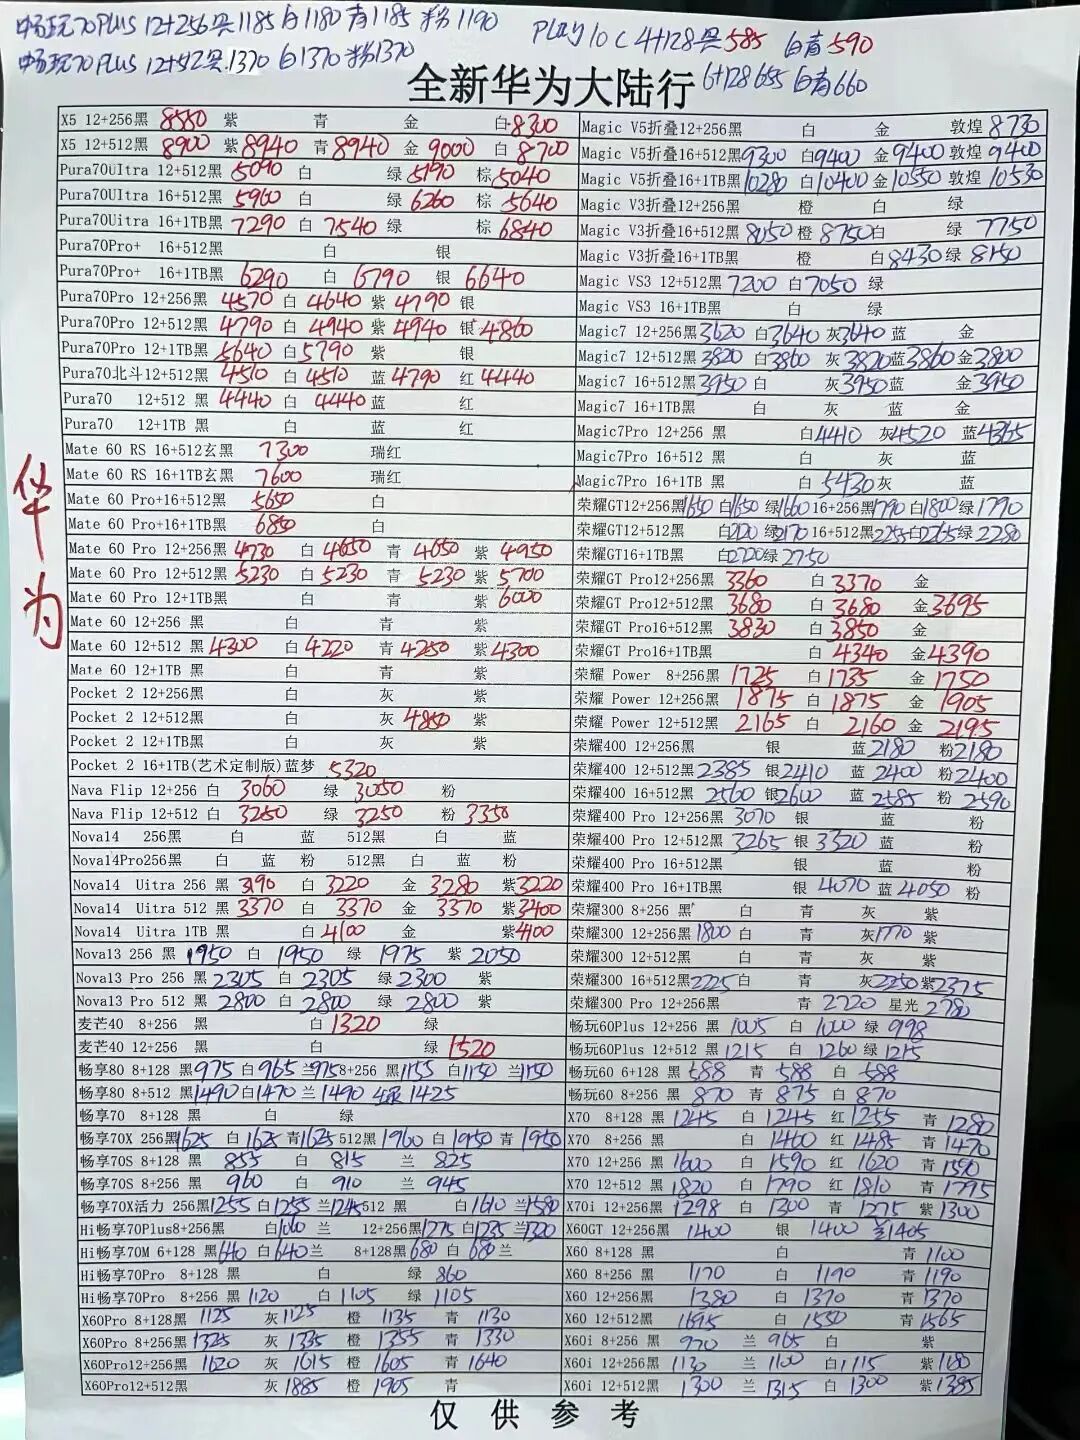 畅玩70PLUS 12+256黑1185 白1180 青1185 粉1190
畅玩70PLUS 12+512黑1370 白1370 粉1370
Play 10C 4+128黑585 白青590
6+128 655 白青660
全新华为大陆行
华为
X5 12+256黑 8550 紫 青 金 白8300
X5 12+512黑 8900 紫8940 青8940 金9000 白8700
Pura70Ultra 12+512黑 5090 白 绿5190 棕5040
Pura70Ultra 16+512黑 5960 白 绿6260 棕5640
Pura70Uitra 16+1TB黑 7290 白7540 绿 棕6840
Pura70Pro+ 16+512黑 白 银
Pura70Pro+ 16+1TB黑 6290 白6790 银6640
Pura70Pro 12+256黑 4570 白4640 紫4790 银
Pura70Pro 12+512黑 4790 白4940 紫4940 银4860
Pura70Pro 12+1TB黑 5640 白5790 紫 银
Pura70北斗12+512黑 4510 白4510 蓝4790 红4440
Pura70 12+512 黑 4440 白4440 蓝 红
Pura70 12+1TB 黑 白 蓝 红
Mate 60 RS 16+512玄黑 7300 瑞红
Mate 60 RS 16+1TB玄黑 7600 瑞红
Mate 60 Pro+16+512黑 5650 白
Mate 60 Pro+16+1TB黑 6850 白
Mate 60 Pro 12+256黑 4730 白4650 青4650 紫4950
Mate 60 Pro 12+512黑 5230 白5230 青5230 紫5700
Mate 60 Pro 12+1TB黑 白 青 紫6000
Mate 60 12+256 黑 白 青 紫
Mate 60 12+512 黑4300 白4220 青4250 紫4300
Mate 60 12+1TB 黑 白 青 紫
Pocket 2 12+256黑 白 灰 紫
Pocket 2 12+512黑 白 灰4850 紫
Pocket 2 12+1TB黑 白 灰 紫
Pocket 2 16+1TB(艺术定制版)蓝梦 5320
Nava Flip 12+256 白 3060 绿3050 粉
Nava Flip 12+512 白 3250 绿3250 粉3350
Nova14 256黑 白 蓝 512黑 白 蓝
Nova14Pro256黑 白 蓝 粉 512黑 白 蓝 粉
Nova14 Uitra 256 黑 3190 白3220 金3280 紫3220
Nova14 Uitra 512 黑 3370 白3370 金3370 紫3400
Nova14 Uitra 1TB 黑 白4100 金 紫4100
Nova13 256 黑 1950 白1950 绿1975 紫2050
Nova13 Pro 256 黑2305 白2305 绿2300 紫
Nova13 Pro 512 黑2800 白2800 绿2800 紫
麦芒40 8+256 黑 白1320 绿
麦芒40 12+256 黑 白 绿1520
畅享80 8+128 黑975 白965 兰975 8+256 黑1155 白1150 兰1150
畅享80 8+512 黑1490 白1470 兰1490 1425
畅享70 8+128 黑 白 绿
畅享70X 256黑1625 白1625 青1625 512黑1960 白1950 青1950
畅享70S 8+128 黑 855 白815 兰825
畅享70S 8+256 黑 960 白910 兰945
畅享70X活力 256黑1255 白1255 兰1245 512 黑 白1610 兰1580
Hi畅享70Plus8+256黑 白 兰 12+256黑1275 白1235 兰1320
Hi畅享70M 6+128 黑640 白640 兰 8+128黑680 白680 兰
Hi畅享70Pro 8+128 黑 白 绿860
Hi畅享70Pro 8+256 黑 1120 白1105 绿1105
X60Pro 8+128黑 1125 灰1125 橙1135 青1130
X60Pro 8+256黑1325 灰1335 橙1355 青1330
X60Pro12+256黑 1620 灰1615 橙1605 青1640
X60Pro12+512黑 灰1885 橙1905 青
Magic V5折叠12+256黑 白 金 敦煌8730
Magic V5折叠16+512黑9300 白9400 金9400 敦煌9400
Magic V5折叠16+1TB黑10280 白10400 金10550 敦煌10530
Magic V3折叠12+256黑 橙 白 绿
Magic V3折叠16+512黑8050 橙8750 白 绿7750
Magic V3折叠16+1TB黑 橙 白8430 绿8150
Magic VS3 12+512黑7200 白7050 绿
Magic VS3 16+1TB黑 白 绿
Magic7 12+256黑3620 白3640 灰3640 蓝 金
Magic7 12+512黑3820 白3860 灰3820 蓝3860 金3800
Magic7 16+512黑3950 白 灰3950 蓝 金3950
Magic7 16+1TB黑 白 灰 蓝 金
Magic7Pro 12+256 黑 白4410 灰4520 蓝4365
Magic7Pro 16+512 黑 白 灰 蓝
Magic7Pro 16+1TB黑 白5430 灰 蓝
荣耀GT12+256黑1650 白1650 绿1660 16+256黑1790 白1800 绿1790
荣耀GT12+512黑 白 绿2170 16+512黑2255 白2265 绿2280
荣耀GT16+1TB黑 白2720 绿2750
荣耀GT Pro12+256黑 3360 白3370 金
荣耀GT Pro12+512黑 3680 白3680 金3695
荣耀GT Pro16+512黑 3830 白3850 金
荣耀GT Pro16+1TB黑 白4340 金4390
荣耀 Power 8+256黑 1725 白1735 金1750
荣耀 Power 12+256黑 1875 白1875 金1905
荣耀 Power 12+512黑 2165 白2160 金2195
荣耀400 12+256黑 银 蓝2180 粉2180
荣耀400 12+512黑2385 银2410 蓝2400 粉2400
荣耀400 16+512黑 2560 银2600 蓝2585 粉2590
荣耀400 Pro 12+256黑 3070 银 蓝 粉
荣耀400 Pro 12+512黑 3265 银3320 蓝 粉
荣耀400 Pro 16+512黑 银 蓝 粉
荣耀400 Pro 16+1TB黑 银4070 蓝4050 粉
荣耀300 8+256 黑 白 青 灰 紫
荣耀300 12+256黑1800 白 青 灰1770 紫
荣耀300 12+512黑 白 青 灰 紫
荣耀300 16+512黑2225 白 青 灰2250 紫2375
荣耀300 Pro 12+256黑 青2720 星光2780
畅玩60Plus 12+256 黑 1005 白1000 绿998
畅玩60Plus 12+512 黑1215 白1260 绿1215
畅玩60 6+128 黑588 青588 白588
畅玩60 8+256 黑 870 青875 白870
X70 8+128 黑 1245 白1245 红1255 青1280
X70 8+256 黑 白1460 红1485 青1470
X70 12+256 黑 1600 白1590 红1620 青1590
X70 12+512 黑 1820 白1790 红1810 青1795
X70i 12+256 黑 1298 白1300 青1275 紫1300
X60GT 12+256黑 1400 银1400 兰1405
X60 8+128 黑 白 青1100
X60 8+256 黑 1170 白1190 青1190
X60 12+256 黑 1380 白1370 青1370
X60 12+512 黑 1595 白1550 青1565
X60i 8+256 黑 970 兰965 白 紫
X60i 12+256黑 1130 兰1100 白1115 紫1180
X60i 12+512黑 1300 兰1315 白1300 紫1385
仅供参考